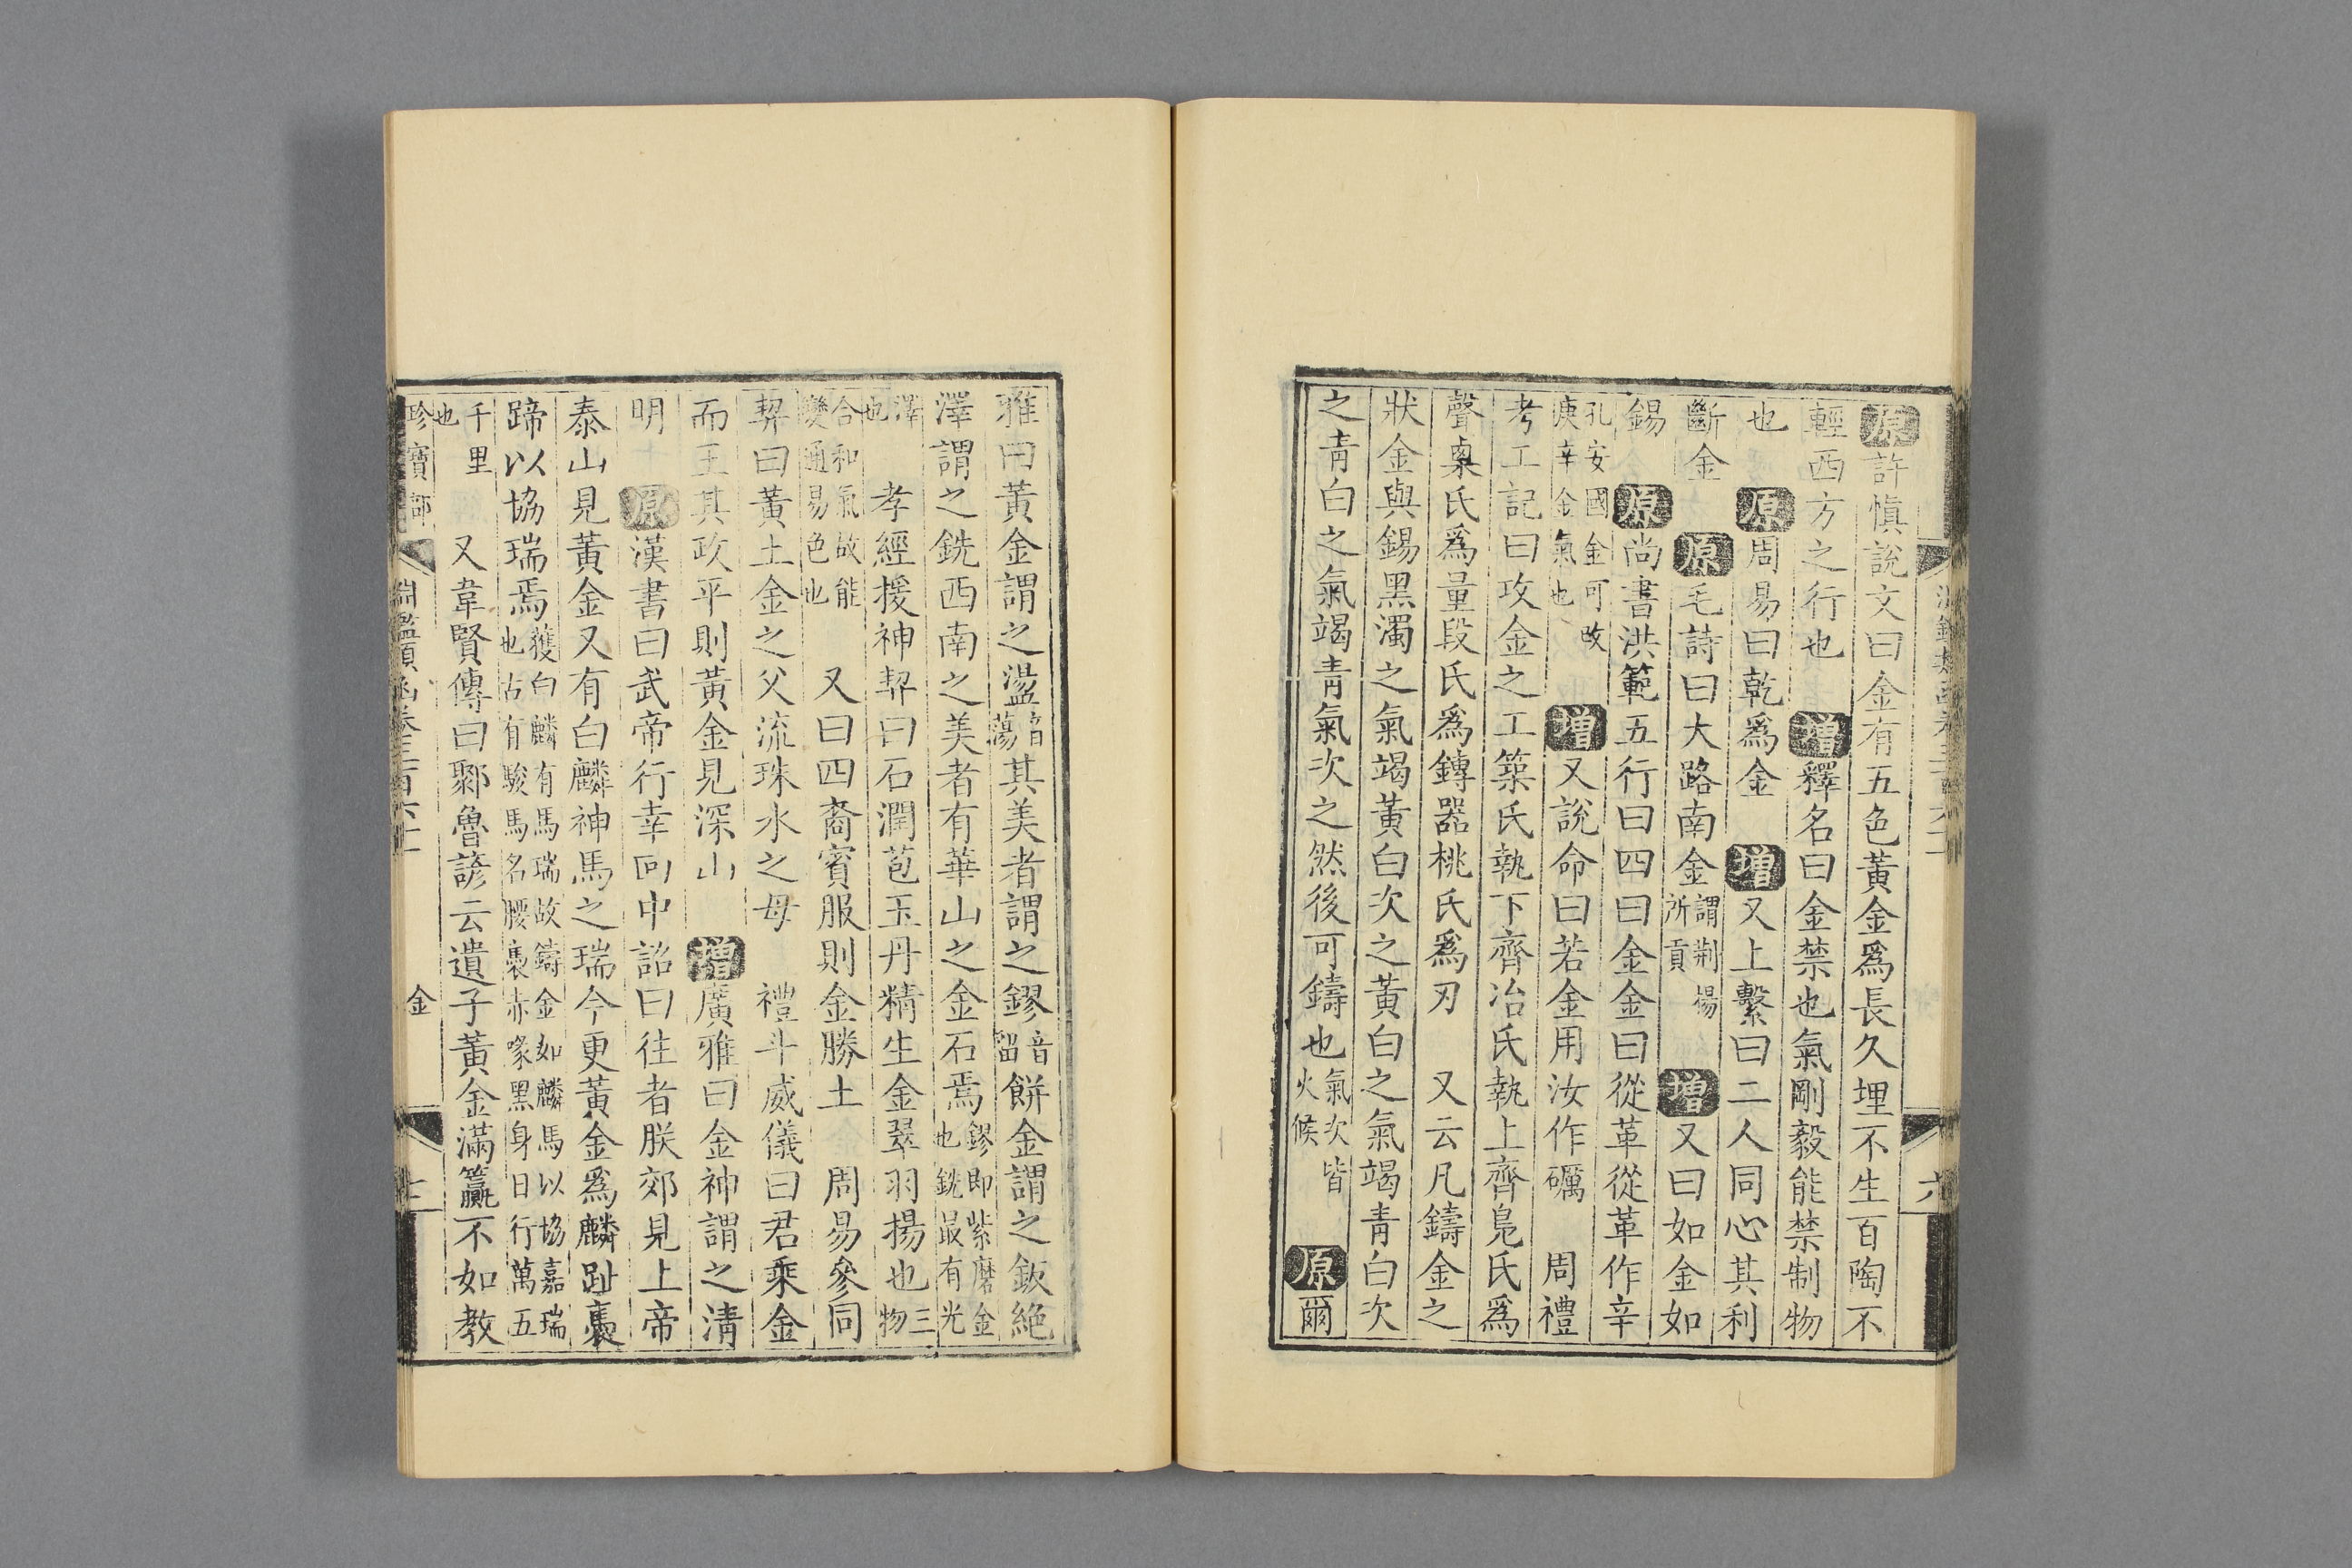 原許慎說文曰金有五色黃金爲長久埋不生百陶不
輕西方之行也 增釋名曰金禁也氣剛毅能禁制物
也 原周易曰乾爲金 增又上繫曰二人同心其利
斷金 原毛詩曰大路南金謂荆楊所貢 增又曰如金如
錫 原尚書洪範五行曰四曰金金曰從革從革作辛
孔安國金可改庚辛金氣也 增又說命曰若金用汝作礪 周禮
考工記曰攻金之工築氏執下齊冶氏執上齊鳧氏爲
聲㮚氏爲量段氏爲鎛器桃氏爲刃 又云凡鑄金之
狀金與錫黑濁之氣竭黃白次之黃白之氣竭青白次
之青白之氣竭青氣次之然後可鑄也氣次皆火候 原爾
雅曰黃金謂之璗音蕩其美者謂之鏐音留餅金謂之鈑絕
澤謂之銑西南之美者有華山之金石焉鏐即紫磨金也銑最有光
澤也 孝經援神契曰石潤苞玉丹精生金翠羽揚也三物
合和氣故能變通易色也 又曰四裔賓服則金勝土 周易參同
契曰黃土金之父流珠水之母 禮斗威儀曰君乘金
而王其政平則黃金見深山 增廣雅曰金神謂之清
明 原漢書曰武帝行幸回中詔曰往者朕郊見上帝
泰山見黃金又有白麟神馬之瑞今更黃金爲麟趾褭
蹄以協瑞焉獲白麟有馬瑞故鑄金如麟馬以協嘉瑞也古有駿馬名腰褭赤喙黑身日行萬五
千里也 又韋賢傳曰鄒魯諺云遺子黃金滿籯不如教
珍寶部 淵鑑類函卷三百六十一 金
六